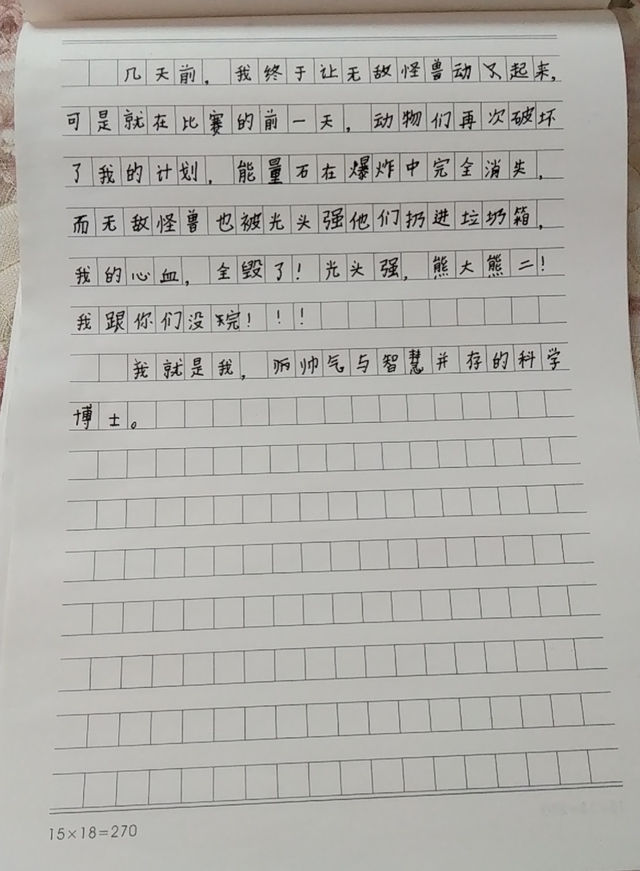 几天前，我终于让无敌怪兽动了起来，
可是就在比赛的前一天，动物们再次破坏
了我的计划，能量石在爆炸中完全消失，
而无敌怪兽也被光头强他们扔进垃圾箱，
我的心血，全毁了！光头强，熊大熊二！
我跟你们没完！！！
我就是我，帅气与智慧并存的科学
博士。
15×18=270